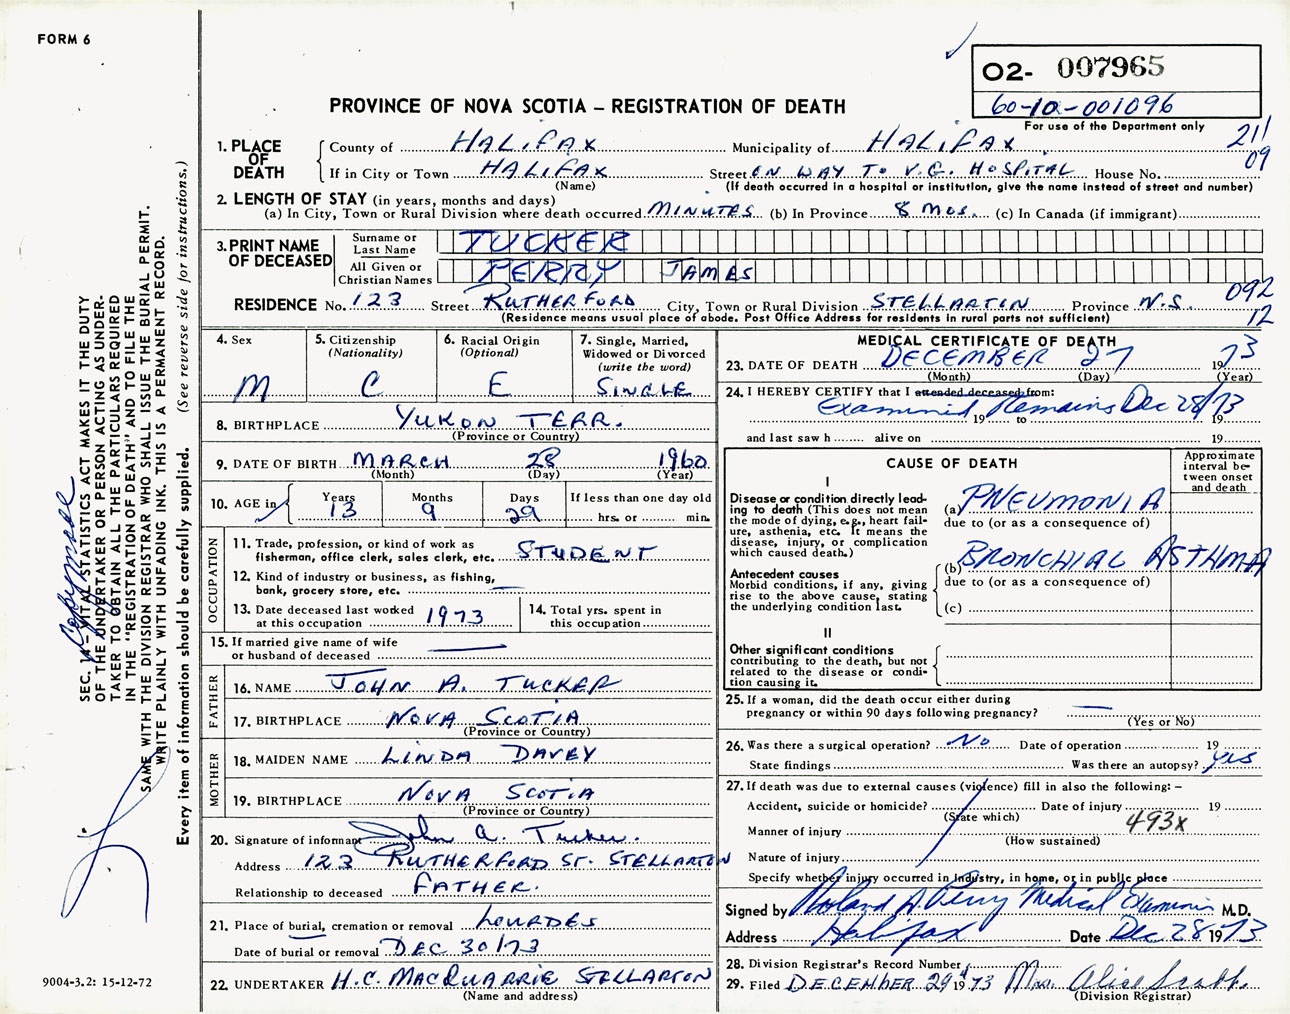 FORM 6
O2- 007965
60-10-001096
For use of the Department only
PROVINCE OF NOVA SCOTIA – REGISTRATION OF DEATH
211
09
1. PLACE OF DEATH
County of HALIFAX Municipality of HALIFAX
If in City or Town HALIFAX Street ON WAY TO V.G. HOSPITAL House No.
(Name) (If death occurred in a hospital or institution, give the name instead of street and number)
2. LENGTH OF STAY (in years, months and days)
(a) In City, Town or Rural Division where death occurred MINUTES (b) In Province 8 MOS. (c) In Canada (if immigrant)
3. PRINT NAME OF DECEASED
Surname or Last Name TUCKER
All Given or Christian Names PERRY JAMES
092
12
RESIDENCE No. 123 Street RUTHERFORD City, Town or Rural Division STELLARTON Province N.S.
(Residence means usual place of abode. Post Office Address for residents in rural parts not sufficient)
4. Sex
M
5. Citizenship
(Nationality)
C
6. Racial Origin
(Optional)
E
7. Single, Married,
Widowed or Divorced
(write the word)
SINGLE
8. BIRTHPLACE YUKON TERR.
(Province or Country)
9. DATE OF BIRTH MARCH 28 1960
(Month) (Day) (Year)
10. AGE in
Years Months Days If less than one day old
13 9 29 hrs. or min.
OCCUPATION
11. Trade, profession, or kind of work as
fisherman, office clerk, sales clerk, etc. STUDENT
12. Kind of industry or business, as fishing,
bank, grocery store, etc. —
13. Date deceased last worked
at this occupation 1973
14. Total yrs. spent in
this occupation
15. If married give name of wife
or husband of deceased —
FATHER
16. NAME JOHN A. TUCKER
17. BIRTHPLACE NOVA SCOTIA
(Province or Country)
MOTHER
18. MAIDEN NAME LINDA DAVEY
19. BIRTHPLACE NOVA SCOTIA
(Province or Country)
20. Signature of informant John A. Tucker.
Address 123 RUTHERFORD ST. STELLARTON
Relationship to deceased FATHER.
21. Place of burial, cremation or removal LOURDES
Date of burial or removal DEC 30/73
22. UNDERTAKER H.C. MACQUARRIE STELLARTON
(Name and address)
MEDICAL CERTIFICATE OF DEATH
23. DATE OF DEATH DECEMBER 27 1973
(Month) (Day) (Year)
24. I HEREBY CERTIFY that I attended deceased from:
Examined Remains Dec 28/73
19 to 19
and last saw h alive on 19
CAUSE OF DEATH
Approximate
interval be-
tween onset
and death
I
Disease or condition directly lead-
ing to death (This does not mean
the mode of dying, e.g., heart fail-
ure, asthenia, etc. It means the
disease, injury, or complication
which caused death.)
(a) PNEUMONIA
due to (or as a consequence of)
Antecedent causes
Morbid conditions, if any, giving
rise to the above cause, stating
the underlying condition last.
(b) BRONCHIAL ASTHMA
due to (or as a consequence of)
(c)
II
Other significant conditions
contributing to the death, but not
related to the disease or condi-
tion causing it.
25. If a woman, did the death occur either during
pregnancy or within 90 days following pregnancy? —
(Yes or No)
26. Was there a surgical operation? No Date of operation 19
State findings Was there an autopsy? Yes
27. If death was due to external causes (violence) fill in also the following: –
Accident, suicide or homicide? Date of injury 19
(State which) 493x
Manner of injury
(How sustained)
Nature of injury
Specify whether injury occurred in Industry, in home, or in public place
Signed by Roland A. Perry Medical Examiner M.D.
Address Halifax Date Dec 28 1973
28. Division Registrar's Record Number
29. Filed DECEMBER 29th 1973 Mrs. Alice Scott.
(Division Registrar)
SEC. 14 – VITAL STATISTICS ACT MAKES IT THE DUTY
OF THE UNDERTAKER OR PERSON ACTING AS UNDER-
TAKER TO OBTAIN ALL THE PARTICULARS REQUIRED
IN THE "REGISTRATION OF DEATH" AND TO FILE THE
SAME WITH THE DIVISION REGISTRAR WHO SHALL ISSUE THE BURIAL PERMIT.
WRITE PLAINLY WITH UNFADING INK. THIS IS A PERMANENT RECORD.
Every item of information should be carefully supplied. (See reverse side for instructions.)
9004-3.2: 15-12-72